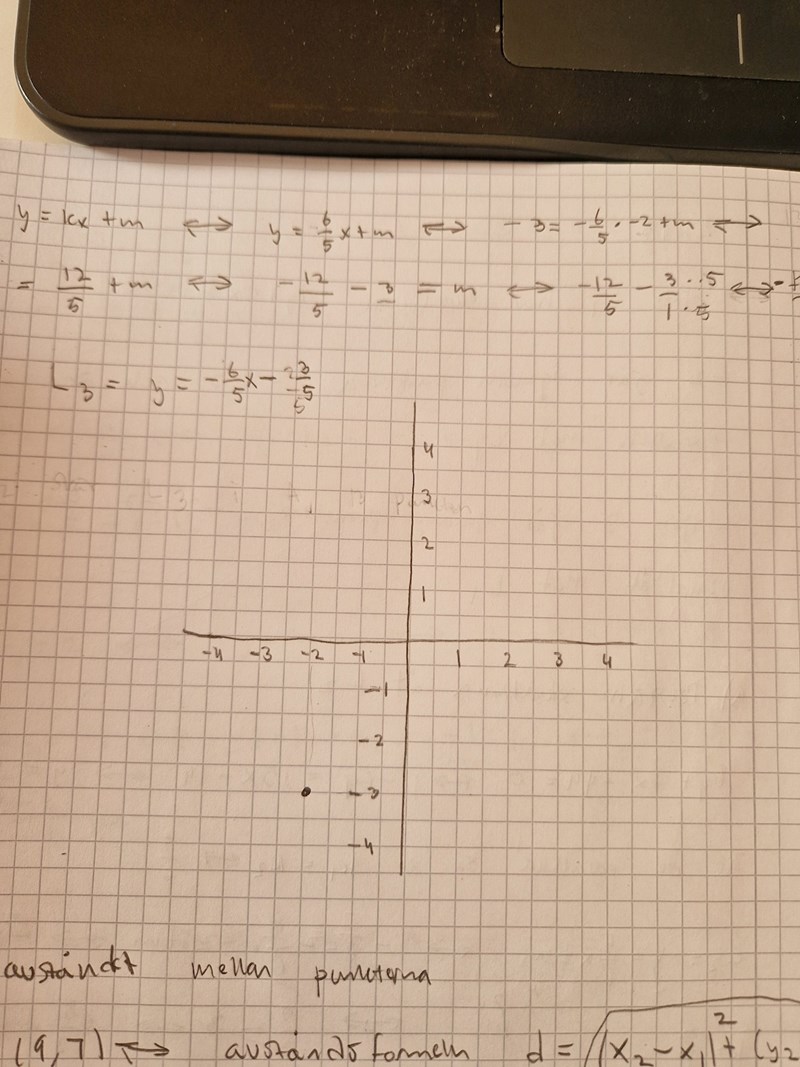 y = kx + m ↔ y = 6/5 x + m ↔ -3 = -6/5 · -2 + m ↔
= 12/5 + m ↔ -12/5 - 3 = m ↔ -12/5 - 3·5/1·5 ↔
L3 = y = -6/5 x -
4
3
2
1
-4 -3 -2 -1 1 2 3 4
-1
-2
-3
-4
avståndet mellan punkterna
(9,7) ↔ avståndsformeln d = √(x₂ - x₁)² + (y₂